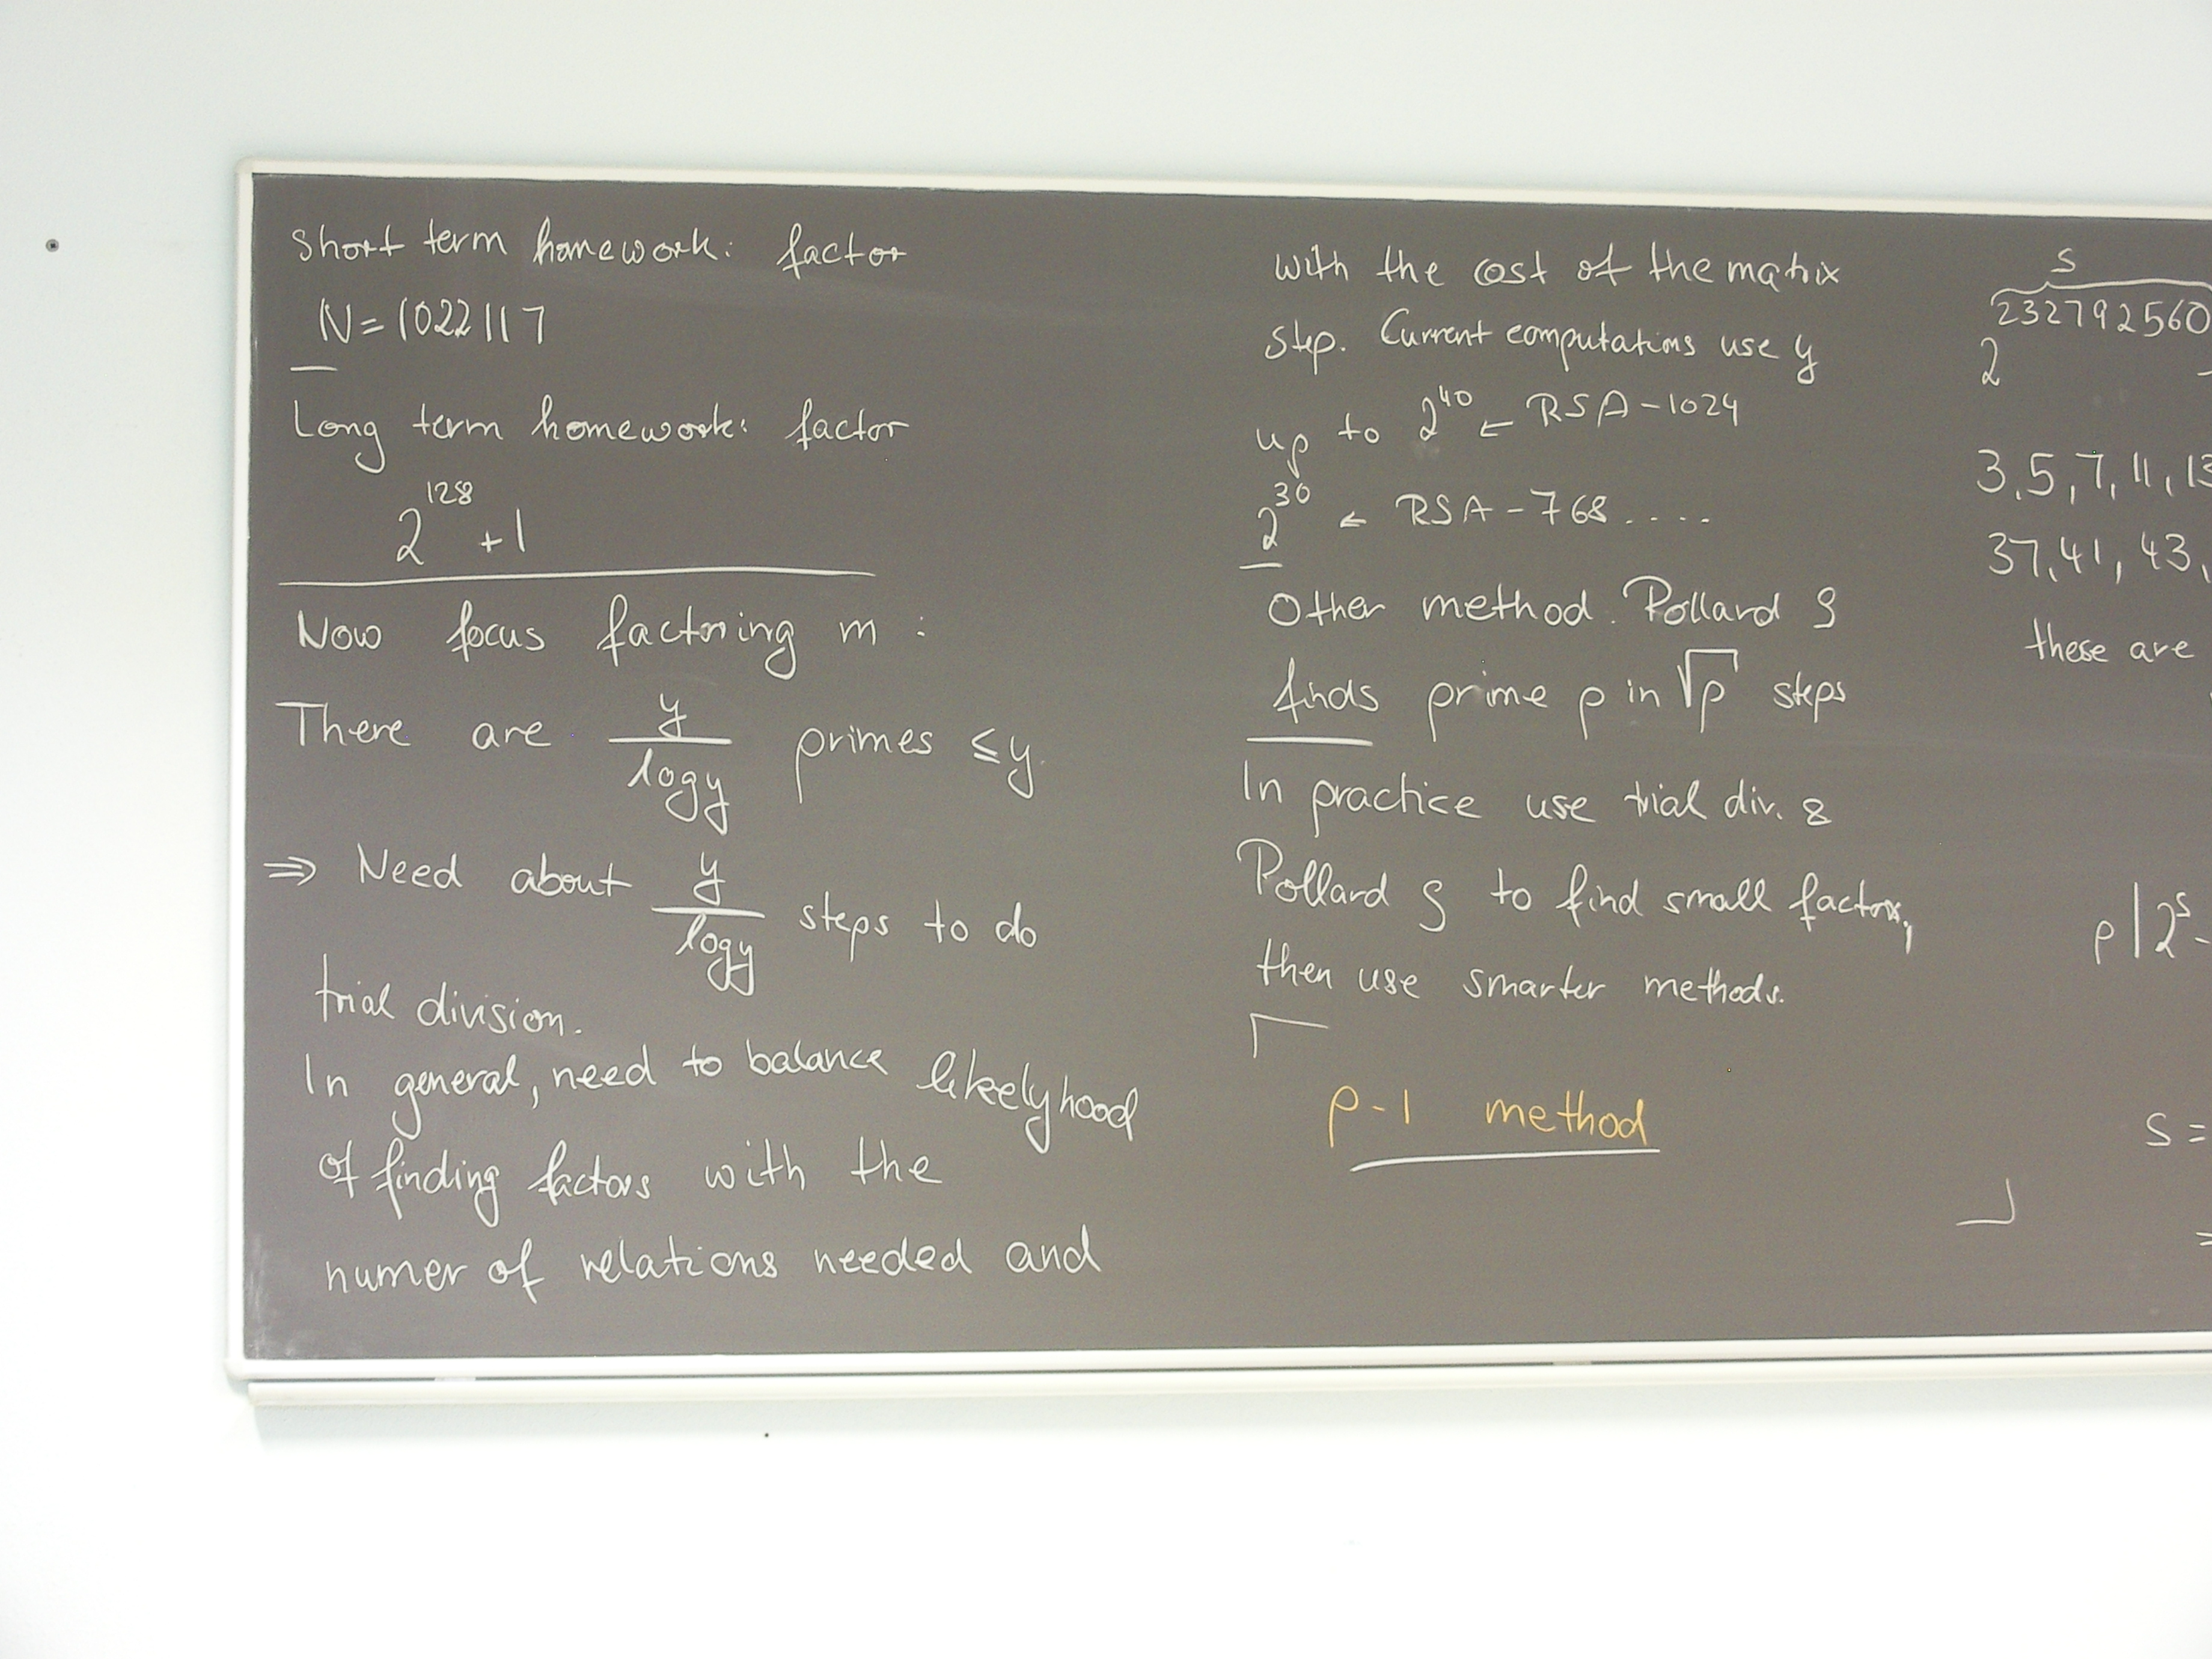 Short term homework: factor
N=1022117
Long term homework: factor
2^128 + 1
Now focus factoring m :
There are y/logy primes ≤y
⇒ Need about y/logy steps to do
trial division.
In general, need to balance likelyhood
of finding factors with the
numer of relations needed and
with the cost of the matrix
step. Current computations use y
up to 2^40 ← RSA-1024
2^30 ← RSA-768....
Other method. Pollard ρ
finds prime p in √p steps
In practice use trial div. &
Pollard ρ to find small factors,
then use smarter methods.
p-1 method
s
232792560
2
3,5,7,11,13
37,41,43,
these are
p|2^s -
s =